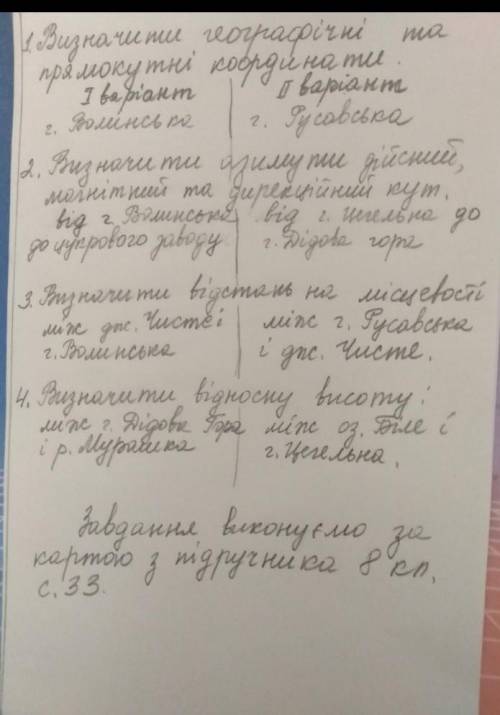 1. Визначити географічні та
прямокутні координати.
I варіант
г. Волинська
II варіант
г. Русавська
2. Визначити азимути дійсний,
магнітний та дирекційний кут.
від г. Волинська
до цукрового заводу
від г. Цегельна до
г. Дідова гора
3. Визначити відстань на місцевості
між дж. Чисте і
г. Волинська
між г. Русавська
і дж. Чисте.
4. Визначити відносну висоту:
між г. Дідова Гора
і р. Мурашка
між оз. Біле і
г. Цегельна.
Завдання виконуємо за
картою з підручника 8 кл.
с. 33.